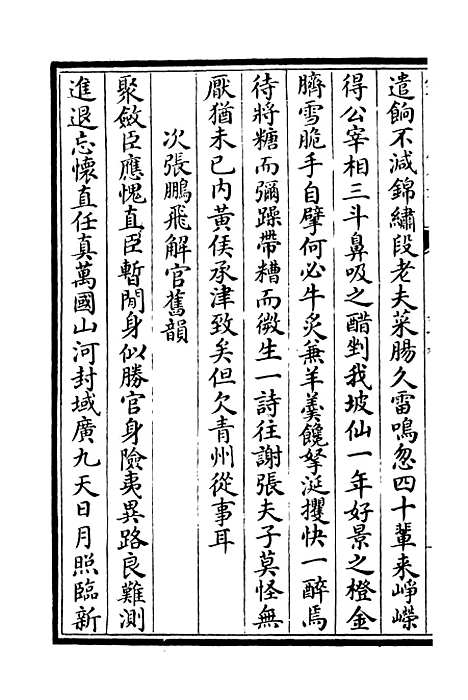 遣餉不減錦繡段老夫菜腸久雷鳴忽四十輩来崢嶸
得公宰相三斗鼻吸之醋剉我坡仙一年好景之橙金
臍雪脆手自擘何必牛炙兼羊羹饞拏涎攫快一醉焉
待將糖而彌躁帶糟而微生一詩往謝張夫子莫怪無
厭猶未已内黃侯承津致矣但欠青州從事耳
次張鵬飛解官舊韻
聚斂臣應愧直臣暫閒身似勝官身險夷異路良難測
進退忘懷直任真萬國山河封域廣九天日月照臨新